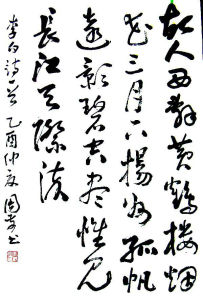 故人西辭黄鶴樓烟
花三月下揚州孤帆
遠影碧空盡惟見
長江天際流
李白詩 乙酉仲夏 書